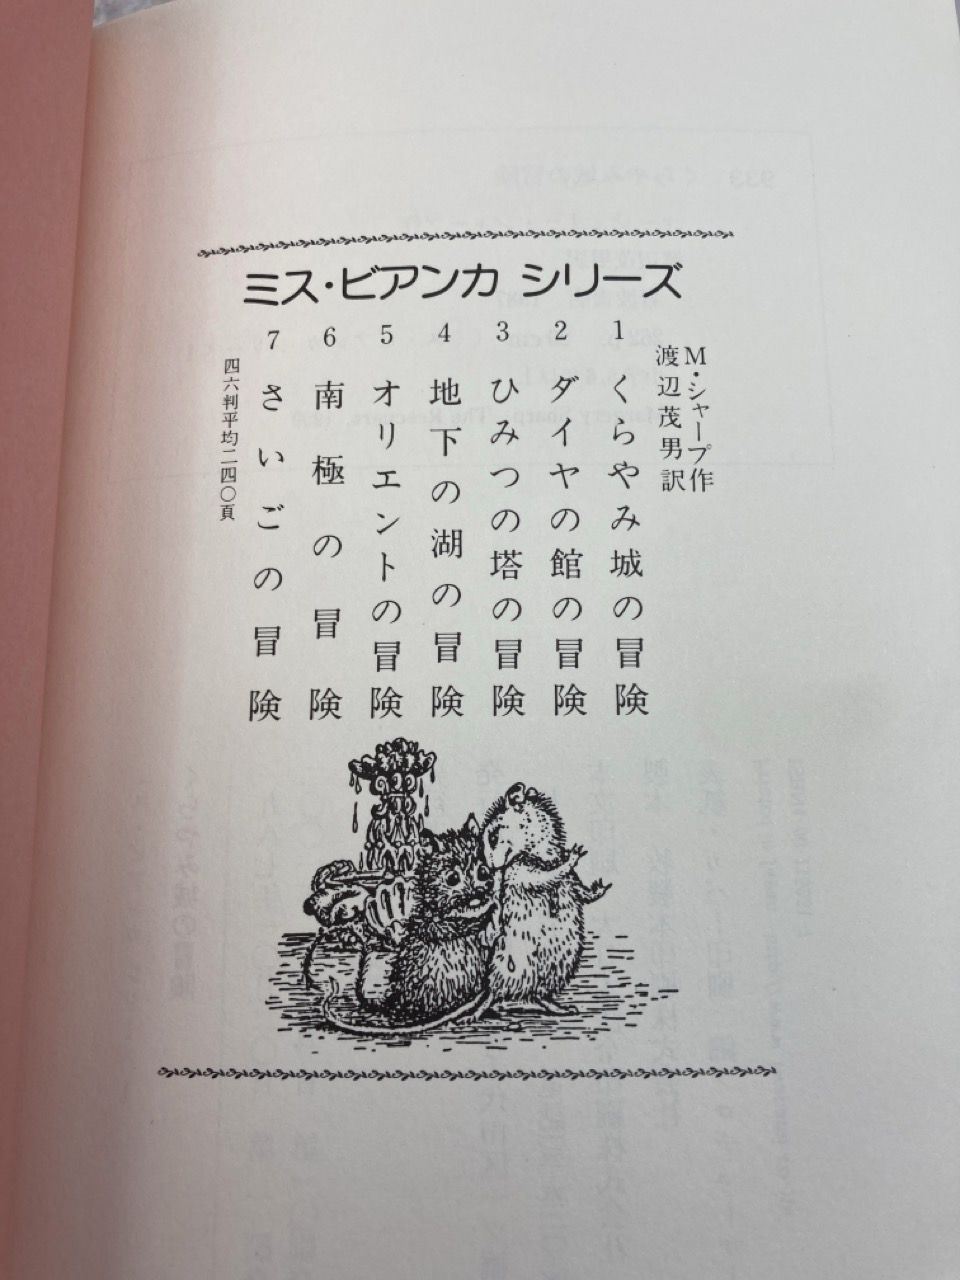 ミス・ビアンカ シリーズ
M・シャープ作
渡辺茂男訳
1 くらやみ城の冒険
2 ダイヤの館の冒険
3 ひみつの塔の冒険
4 地下の湖の冒険
5 オリエントの冒険
6 南極の冒険
7 さいごの冒険
四六判平均二四〇頁